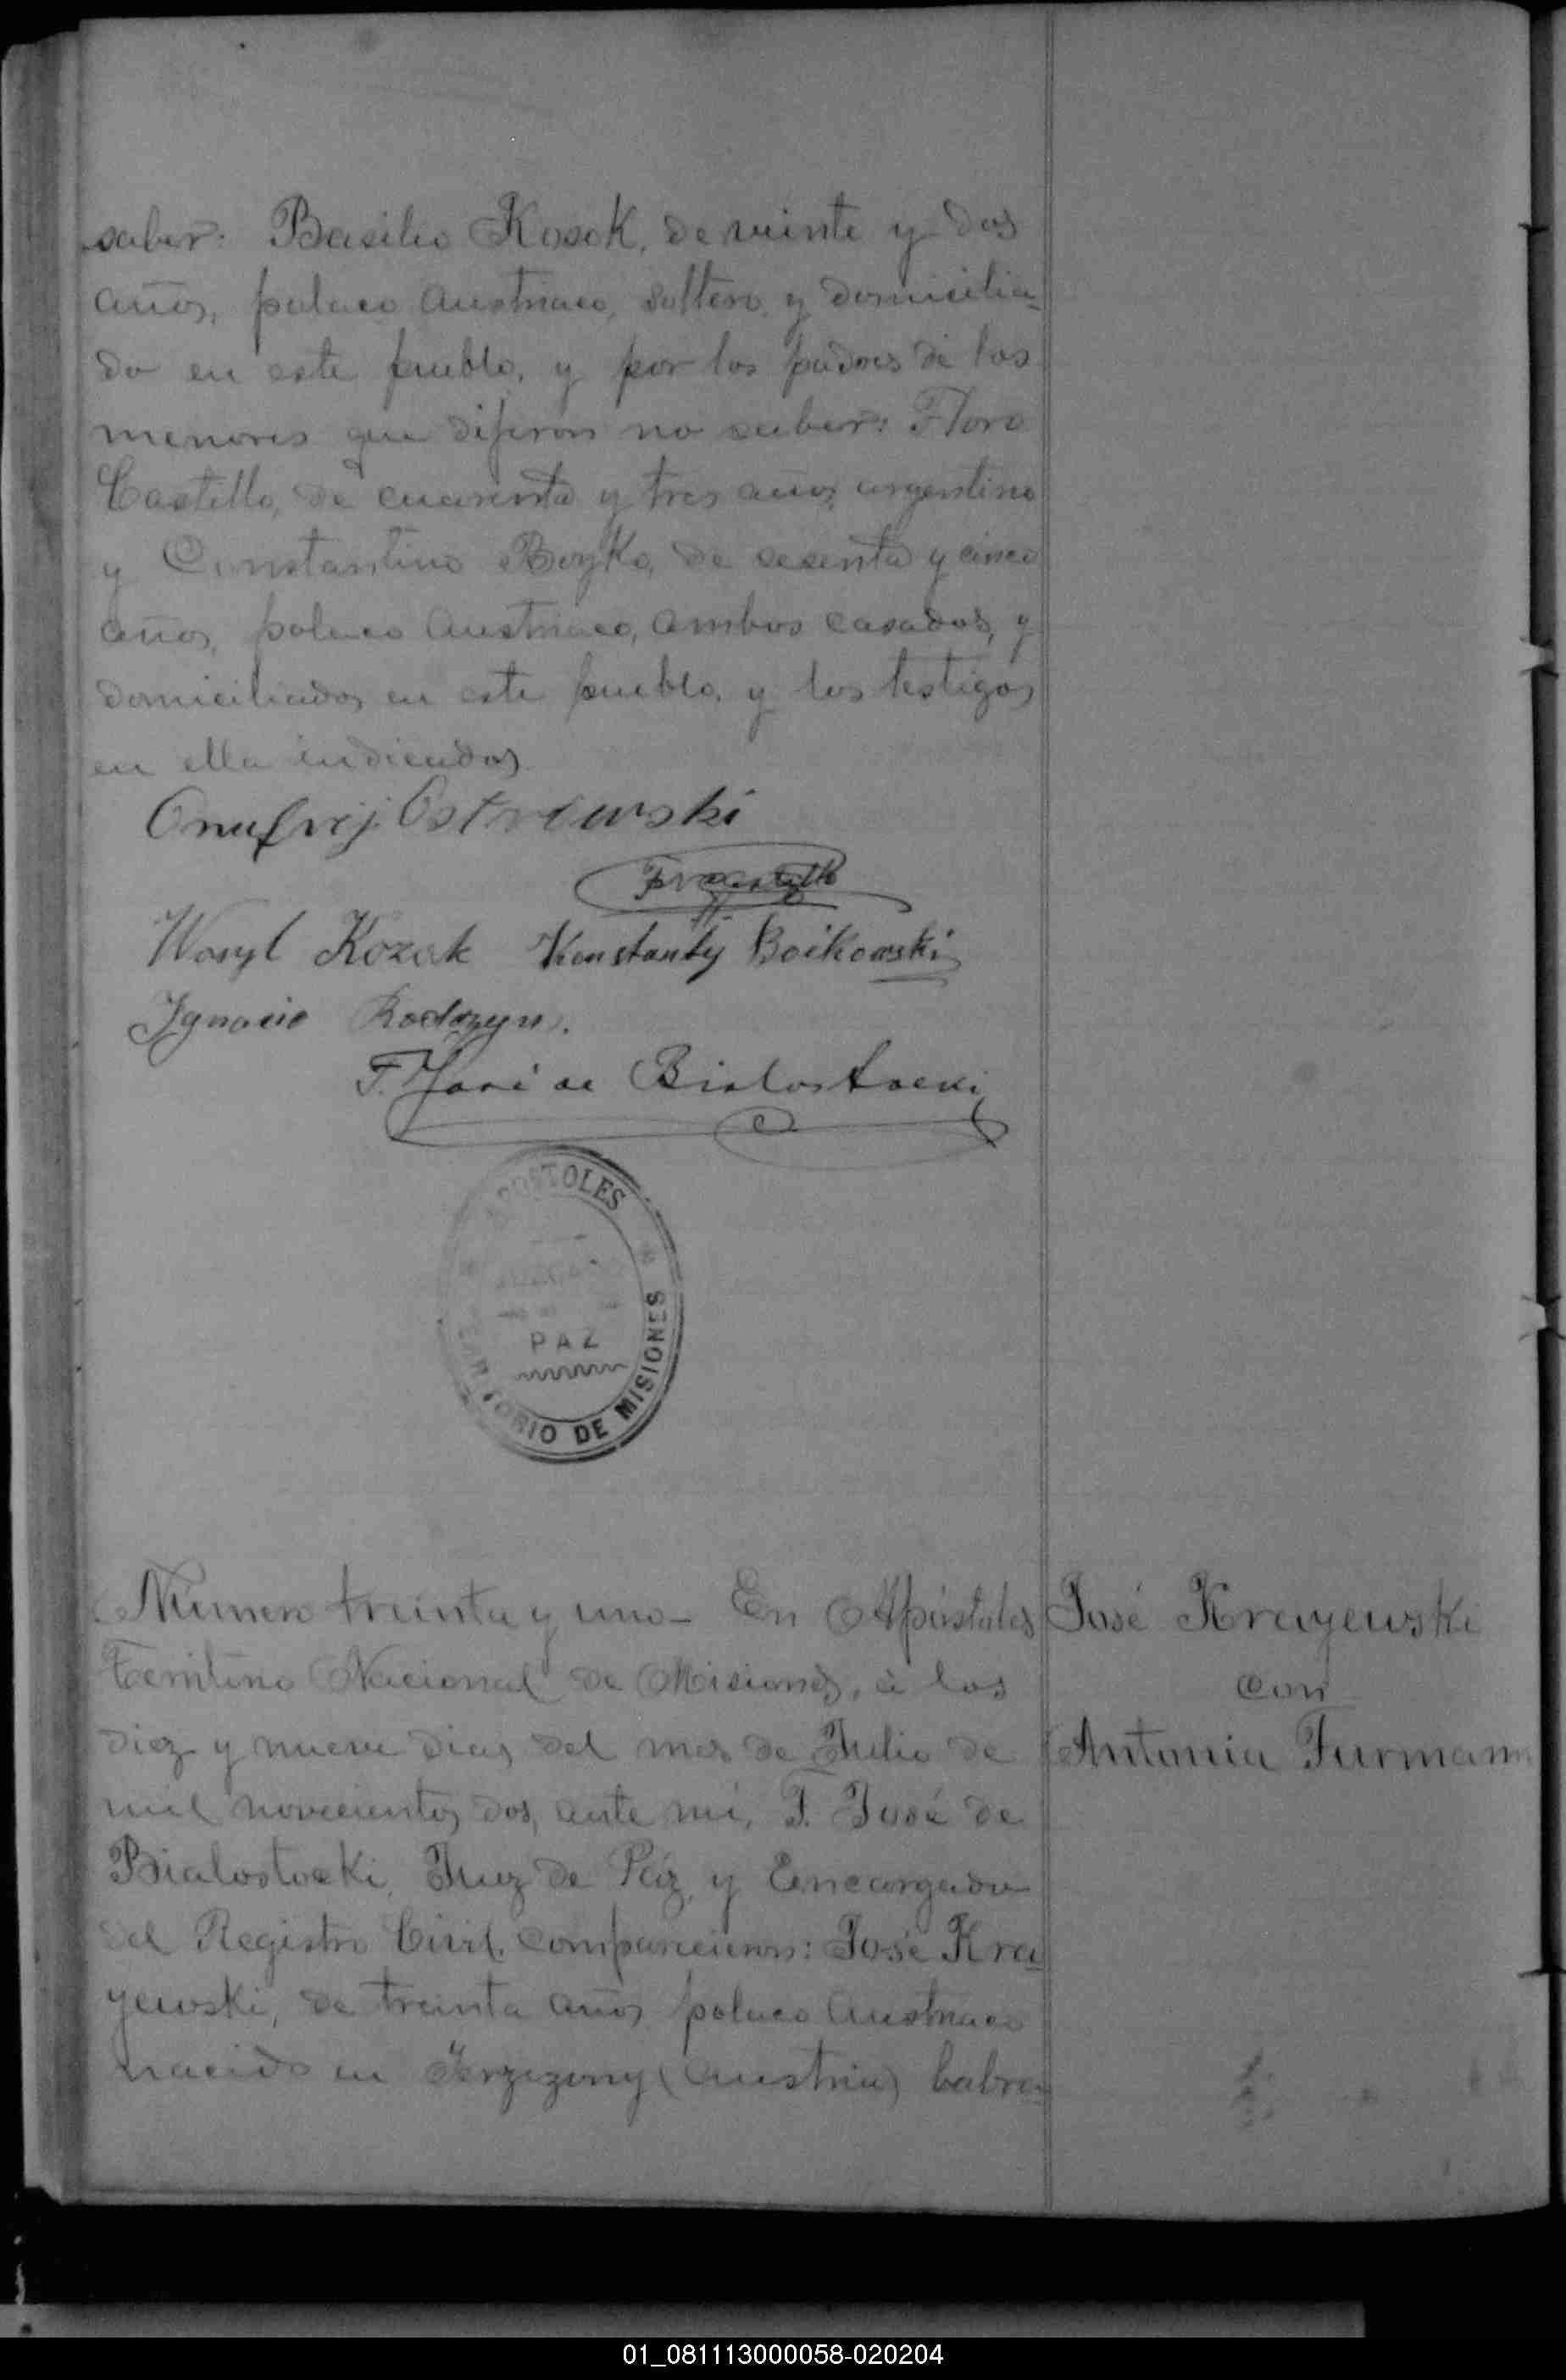 saber: Basilio Kosok, de veinte y dos
años, polaco Austriaco, soltero, y domicilia-
do en este pueblo, y por los padres de los
menores que dijeron no saber: Floro
Castillo, de cuarenta y tres años, argentino
y Constantino Boyko, de sesenta y cinco
años, polaco Austriaco, ambos casados, y
domiciliados en este pueblo, y los testigos
en ella indicados.
Onufrij Ostrowski
Wasyl Kozak Konstanty Boikowski
Ignacio Rodozyn.
F. José de Bialostocki
APOSTOLES
PAZ
TERRITORIO DE MISIONES
Número treinta y uno - En Apóstoles
Territorio Nacional de Misiones, á los
diez y nueve dias del mes de Julio de
mil novecientos dos, ante mí, F. José de
Bialostocki, Juez de Páz y Encargado
del Registro Civil, comparecieron: José Kra-
yewski, de treinta años polaco Austriaco
nacido en (Austria) labra-
José Krayewski
con
Antonia Furmann
01_081113000058-020204